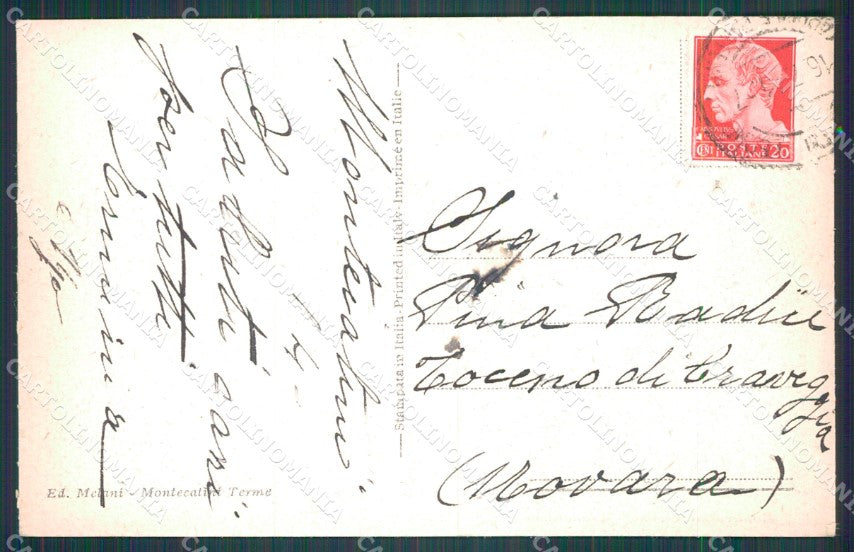 Montecatini
- 4 -
Saluti cari
per tutti
Erminia
e Ija
Ed. Melani - Montecatini Terme
Stampata in Italia - Printed in Italy - Imprimé en Italie
POSTE
CENT ITALIANE 20
Signora
Pina Radice
Toceno di Craveggia
(Novara)
CARTOLINOMANIA